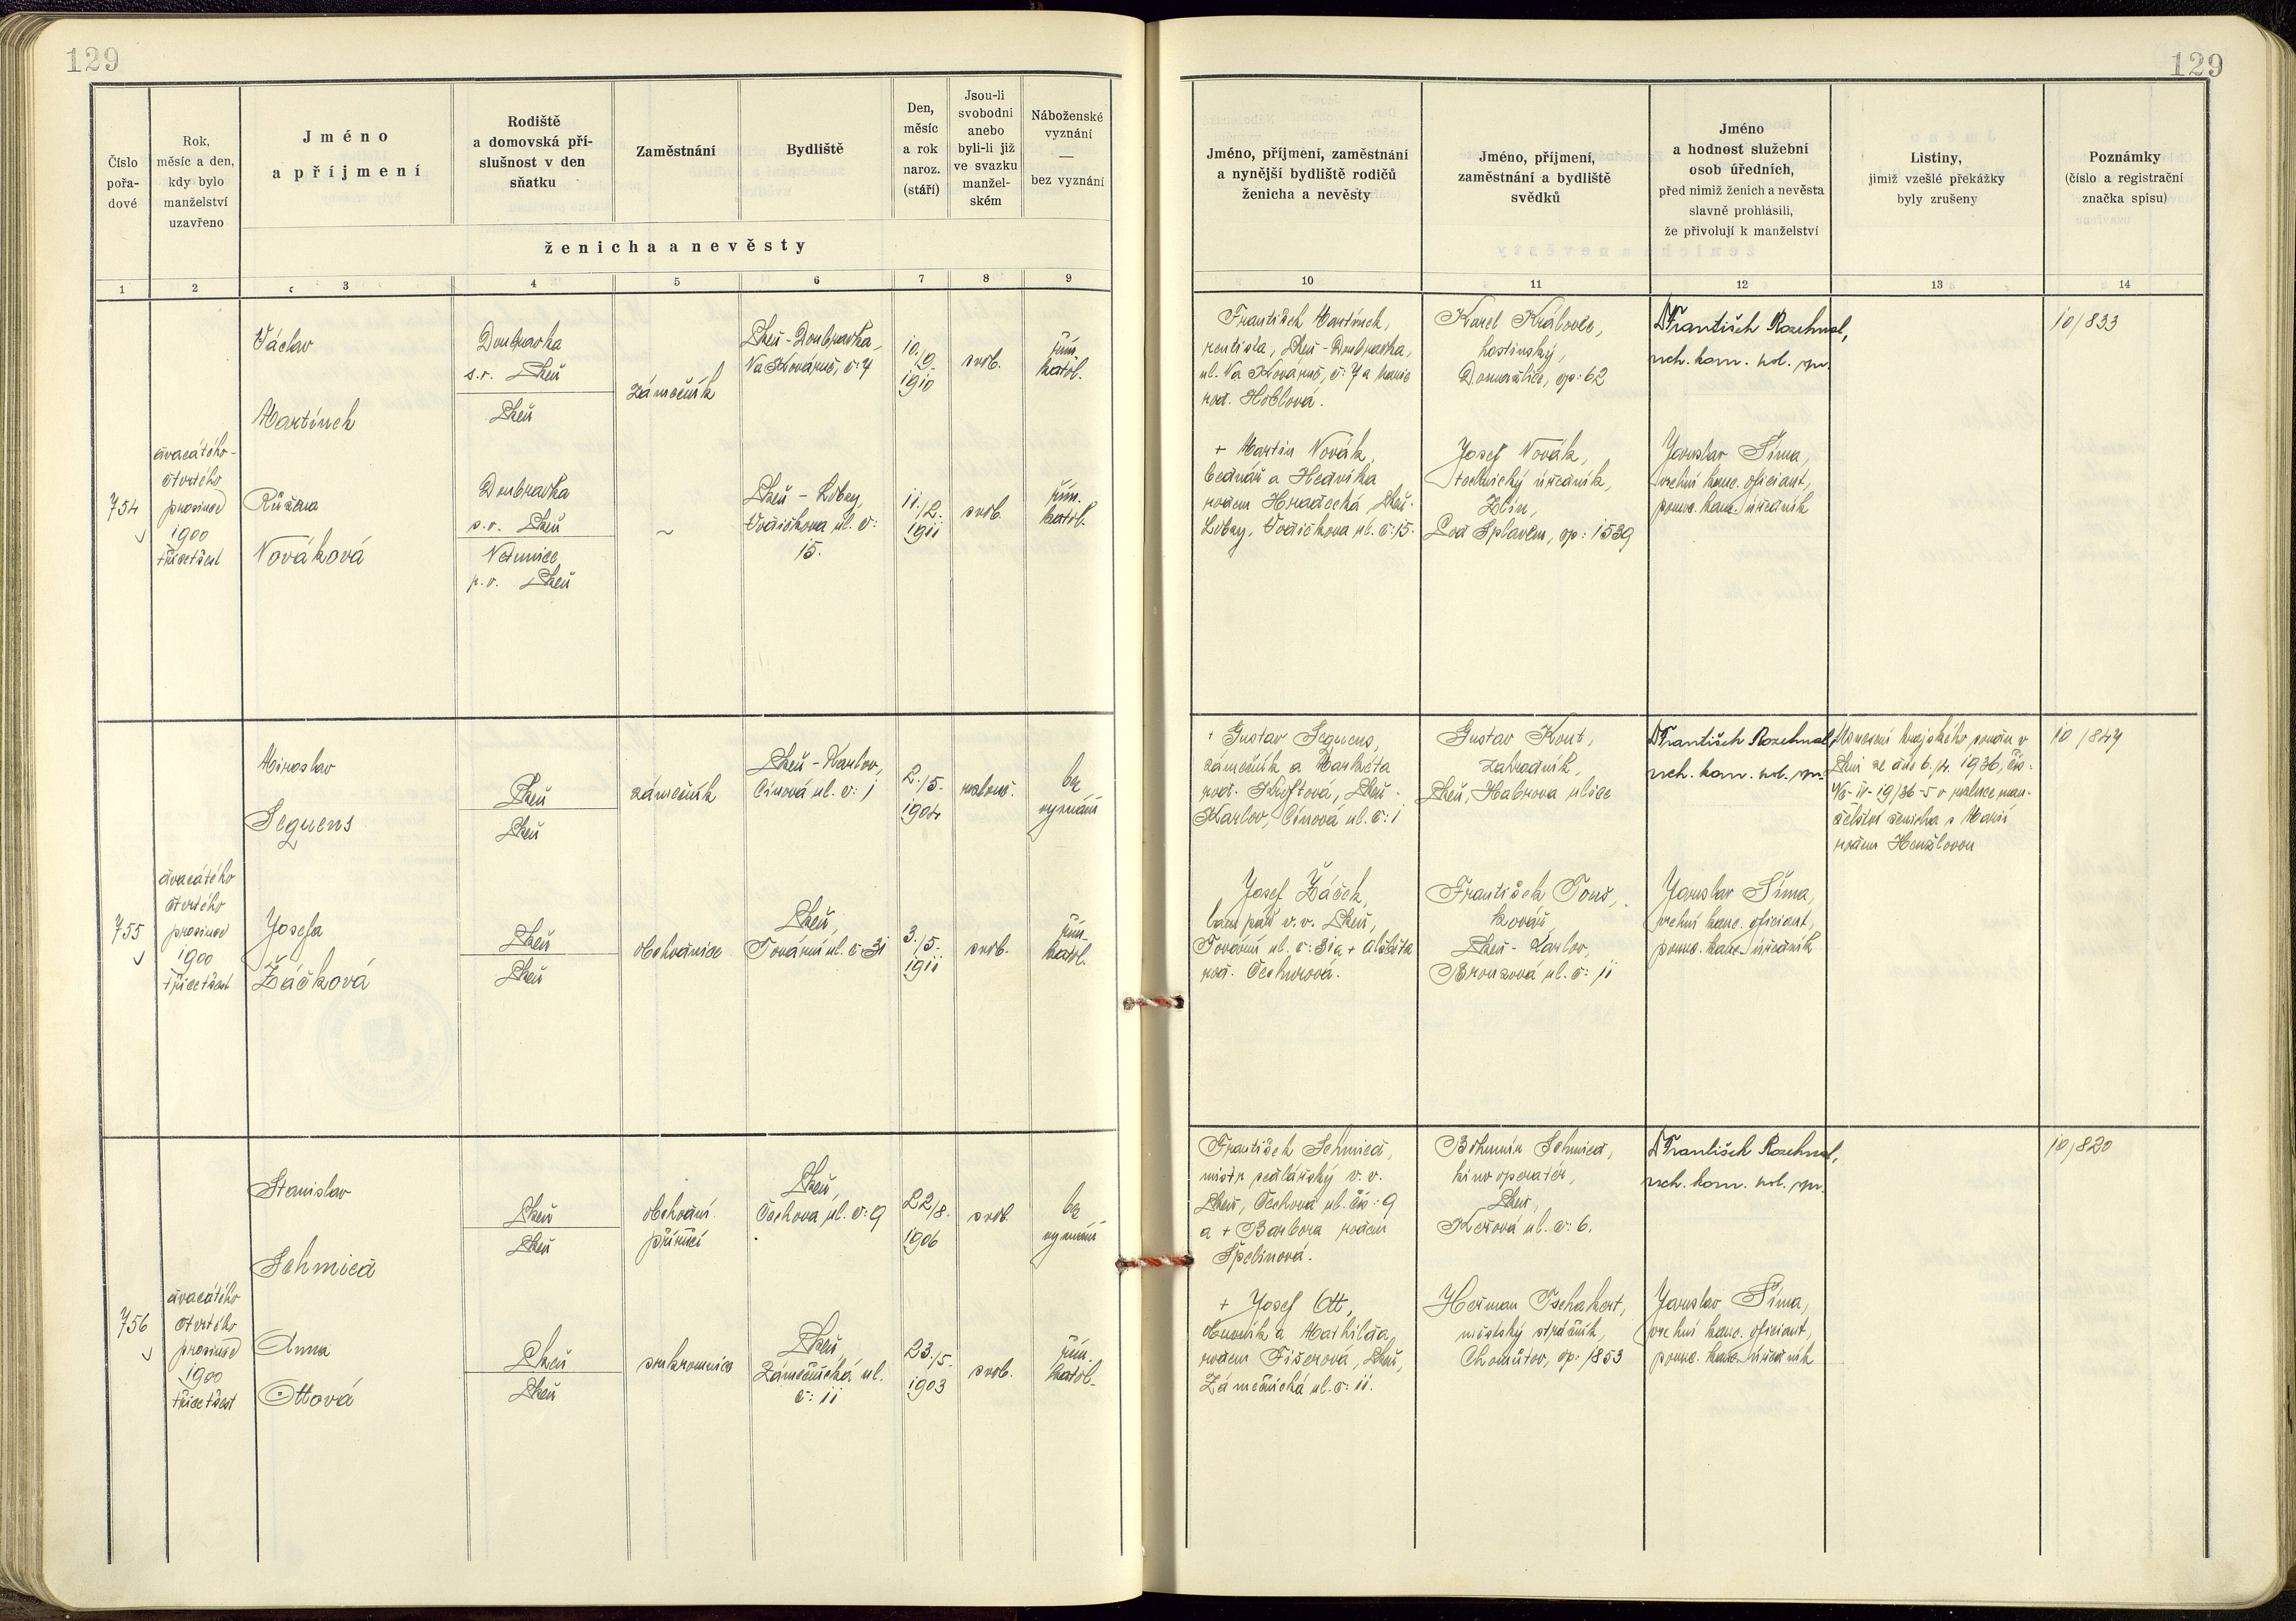 129
Číslo
pořa-
dové
Rok,
měsíc a den,
kdy bylo
manželství
uzavřeno
Jméno
a příjmení
Rodiště
a domovská pří-
slušnost v den
sňatku
Zaměstnání
Bydliště
Den,
měsíc
a rok
naroz.
(stáří)
Jsou-li
svobodni
anebo
byli-li již
ve svazku
manžel-
ském
Náboženské
vyznání
—
bez vyznání
ženicha a nevěsty
1 2 3 4 5 6 7 8 9
754
dvacátého-
čtvrtého
prosince
1900
třicetšest
Václav
Martínek
Doubravka
s.r. Plzeň
Plzeň
zámečník
Plzeň-Doubravka,
Na Kovárně, č: 7
10./9.
1910
svob.
řím.
katol.
Růžena
Nováková
Doubravka
s.r. Plzeň
p.o. Plzeň
~
Plzeň - Lobzy,
Vodičkova ul. č:
15.
11./2.
1911
svob.
řím.
katol.
755
dvacátého
čtvrtého
prosince
1900
třicetšest
Miroslav
Sequens
Plzeň
Plzeň
zámečník
Plzeň-Karlov,
Cínová ul. č: 1
2./5.
1904
rozlouč.
bez
vyznání
Josefa
Žáčková
Plzeň
Plzeň
obchodnice
Plzeň,
Tovární ul. č: 31
3./5.
1911
svob.
řím.
katol.
756
dvacátého
čtvrtého
prosince
1900
třicetšest
Stanislav
Schmied
Plzeň
Plzeň
obchodní
příručí
Plzeň,
Čechova ul. č: 9
22/8.
1906
svob.
bez
vyznání
Anna
Ottová
Plzeň
Plzeň
soukromnice
Plzeň,
Zámečnická ul.
č: 11
23./5.
1903
svob.
řím.
katol.
129
Jméno, příjmení, zaměstnání
a nynější bydliště rodičů
ženicha a nevěsty
Jméno, příjmení,
zaměstnání a bydliště
svědků
Jméno
a hodnost služební
osob úředních,
před nimiž ženich a nevěsta
slavně prohlásili,
že přivolují k manželství
Listiny,
jimiž vzešlé překážky
byly zrušeny
Poznámky
(číslo a registrační
značka spisu)
10 11 12 13 14
František Martínek,
Plzeň-Doubravka,
ul. Na Kovárně, č: 7 a Marie
roz. Hoblová.
Karel Královec,
hostinský,
Domažlice, čp: 62
Dr František Rozehnal,
vrch. kom. pol. spr.
10/833
+ Martin Novák,
bednář a Hedvika
rodem Hradecká, Plzeň-
Lobzy, Vodičkova ul. č: 15.
Josef Novák,
technický úředník,
Zlín,
Pod Splavem, čp: 1539
Jaroslav Šíma,
vrchní kanc. oficiant,
pomoc. kanc. úředník
+ Gustav Sequens,
zámečník a Markéta
roz. Kuftová, Plzeň-
Karlov, Cínová ul. č: 1
Gustav Kout,
zahradník,
Plzeň, Habrova ulice
Dr František Rozehnal,
vrch. kom. pol. spr.
Usnesení krajského soudu v
Plzni ze dne 6./4. 1936, čís:
19/36-5 o rozluce man-
želství ženicha s Marií
rodem Henžlovou
10/847
Josef Žáček,
v.v. Plzeň,
Tovární ul. č: 31 a + Alžběta
roz. Čechurová.
František Touš,
kovář,
Plzeň - Karlov,
Bronzová ul. č: 11
Jaroslav Šíma,
vrchní kanc. oficiant,
pomoc. kanc. úředník
František Schmied,
mistr sedlářský v.v.
Plzeň, Čechova ul. čís: 9
a + Barbora rodem
Špelinová.
Bohumír Schmied,
kino operatér,
Plzeň,
ul. č: 6.
Dr František Rozehnal,
vrch. kom. pol. spr.
10/820
+ Josef Ott,
obuvník a Mathilda
rodem Fišerová, Plzeň,
Zámečnická ul. č: 11.
Heřman Tschakert,
městský strážník,
Chomútov, čp: 1853
Jaroslav Šíma,
vrchní kanc. oficiant,
pomoc. kanc. úředník